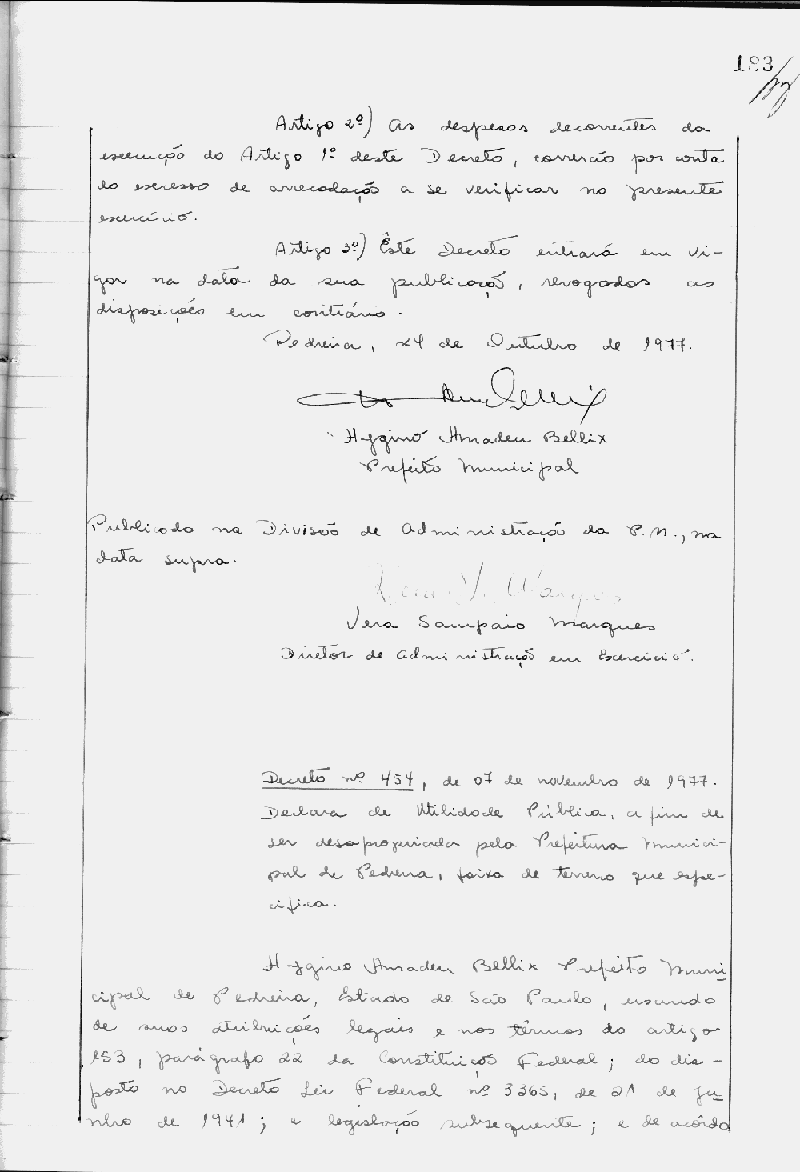 183
Artigo 2º) As despesas decorrentes da
execução do Artigo 1º deste Decreto, correrão por conta
do excesso de arrecadação a se verificar no presente
exercício.
Artigo 3º) Êste Decreto entrará em vi-
gor na data da sua publicação, revogadas as
disposições em contrário.
Pedreira, 24 de Outubro de 1977.
Hygino Amadeu Bellix
Prefeito Municipal
Publicado na Divisão de Administração da P.M., na
data supra.
Vera S. Marques
Vera Sampaio Marques
Diretor de Administração em Exercício.
Decreto nº 454, de 07 de novembro de 1977.
Declara de Utilidade Pública, a fim de
ser desapropriada pela Prefeitura Munici-
pal de Pedreira, faixa de terreno que espe-
cifica.
Hygino Amadeu Bellix Prefeito Muni-
cipal de Pedreira, Estado de São Paulo, usando
de suas atribuições legais e nos têrmos do artigo
153, parágrafo 22 da Constituição Federal; do dis-
posto no Decreto Lei Federal nº 3365, de 21 de ju-
nho de 1941; e legislação subsequente; e de acôrdo